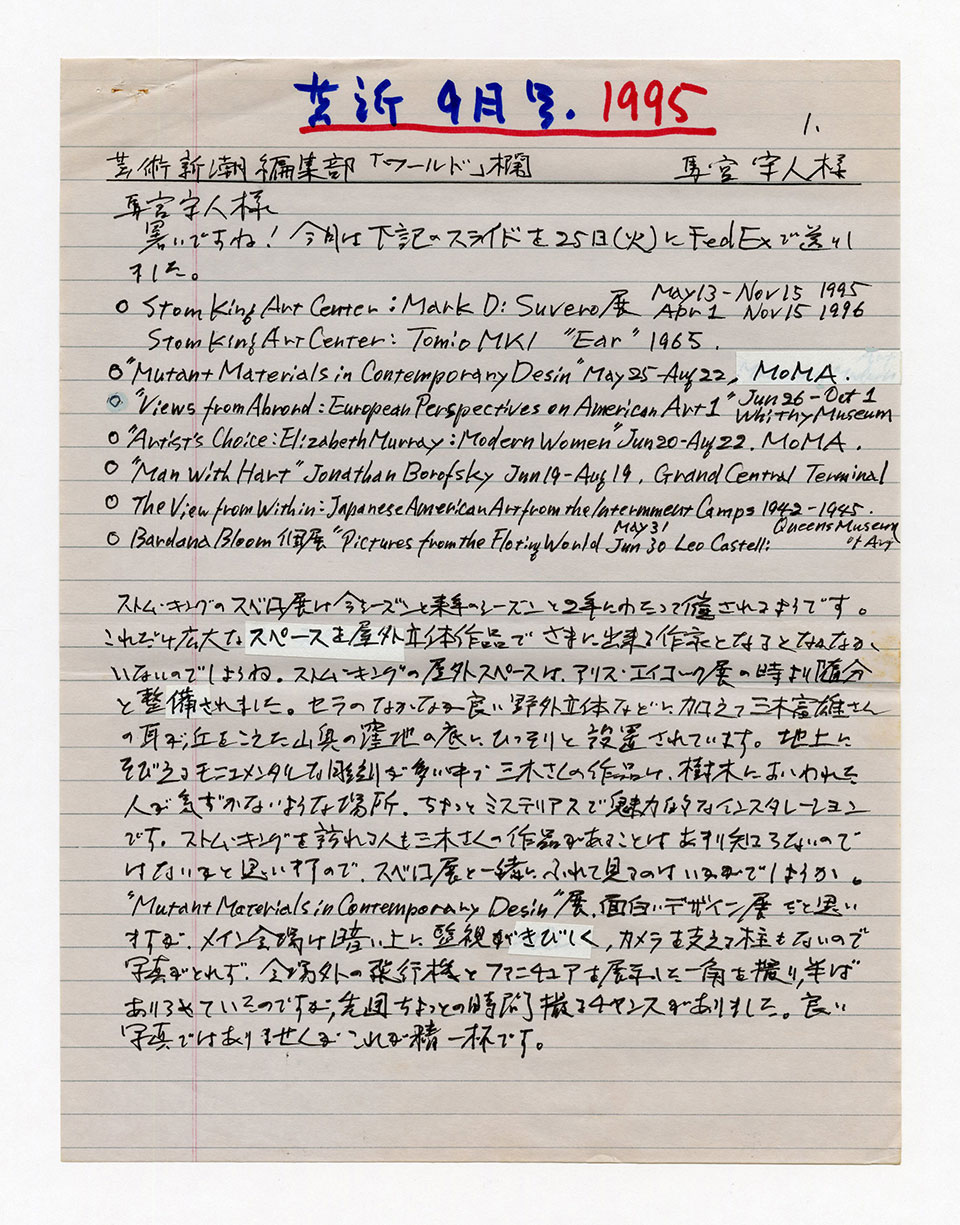 芸新 9月号. 1995
1.
芸術新潮編集部「ワールド」欄 馬宮守人様
馬宮守人様
暑いですね! 今回は下記のスライドを25日(火)にFedExで送りし
ました。
○ Stom King Art Center : Mark D: Suvero展 May13 - Nov15 1995
Apr 1 Nov15 1996
Stom King Art Center : Tomio MKI "Ear" 1965.
○ "Mutant Materials in Contemporary Desin" May25-Aug22, MoMA.
○ "Views from Abrond : European Perspectives on American Art 1" Jun26 - Oct 1
Whithy Museum
○ "Artist's Choice : Elizabeth Murray : Modern Women" Jun20-Aug22. MoMA.
○ "Man With Hart" Jonathan Borofsky Jun19-Aug19, Grand Central Terminal
○ The View from Within : Japanese American Art from the Internment Camps 1942-1945.
Queens Museum
of Art
○ Bardana Bloom 個展 "Pictures from the Floting World May31
Jun30 Leo Castelli
ストム・キングのスベロ展は今シーズンと来年のシーズンと2年にわたって催されるようです。
これだけ広大なスペースを屋外立体作品で さまに出来る作家となるとなかなか
いないのでしょうね。ストム・キングの屋外スペースは、アリス・エイコーク展の時より随分
と整備されました。セラのなかなか良い野外立体などに加えて三木富雄さん
の耳が丘をこえた山奥の窪地の底にひっそりと設置されています。地上に
そびえるモニュメンタルな彫刻が多い中で三木さんの作品は、樹木におおわれた
人が気ずかないような場所、ちょっとミステリアスで魅力的なインスタレーション
です。ストム・キングを訪れる人も三木さんの作品があることはあまり知らないので
はないかと思いますので、スベロ展と一緒にふれて見るのはいかがでしょうか。
"Mutant Materials in Contemporary Desin"展、面白いデザイン展だと思い
ますが、メイン会場は暗い上に監視がきびしく、カメラを支えて柱もないので
写真がとれず、会場外の飛行機とファニチュアを展示した一角を撮り、半ば
あきらめていたのですが、先週ちょっとの時間撮るチャンスがありました。良い
写真ではありませんがこれが精一杯です。